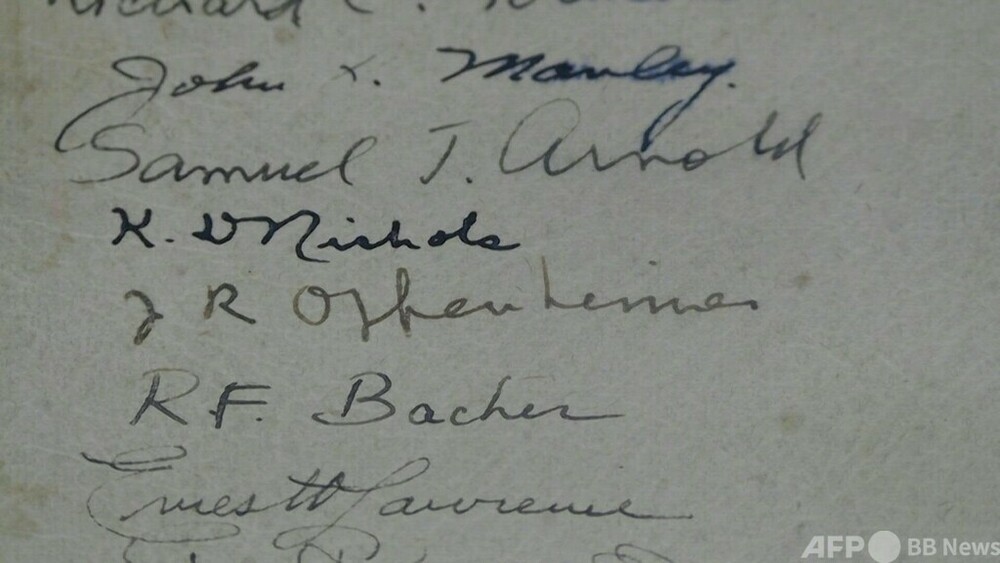 Richard C.
John H. Manley.
Samuel T. Arnold
K. D Nichols
J R Oppenheimer
R. F. Bacher
Ernest O Lawrence
AFP BB News